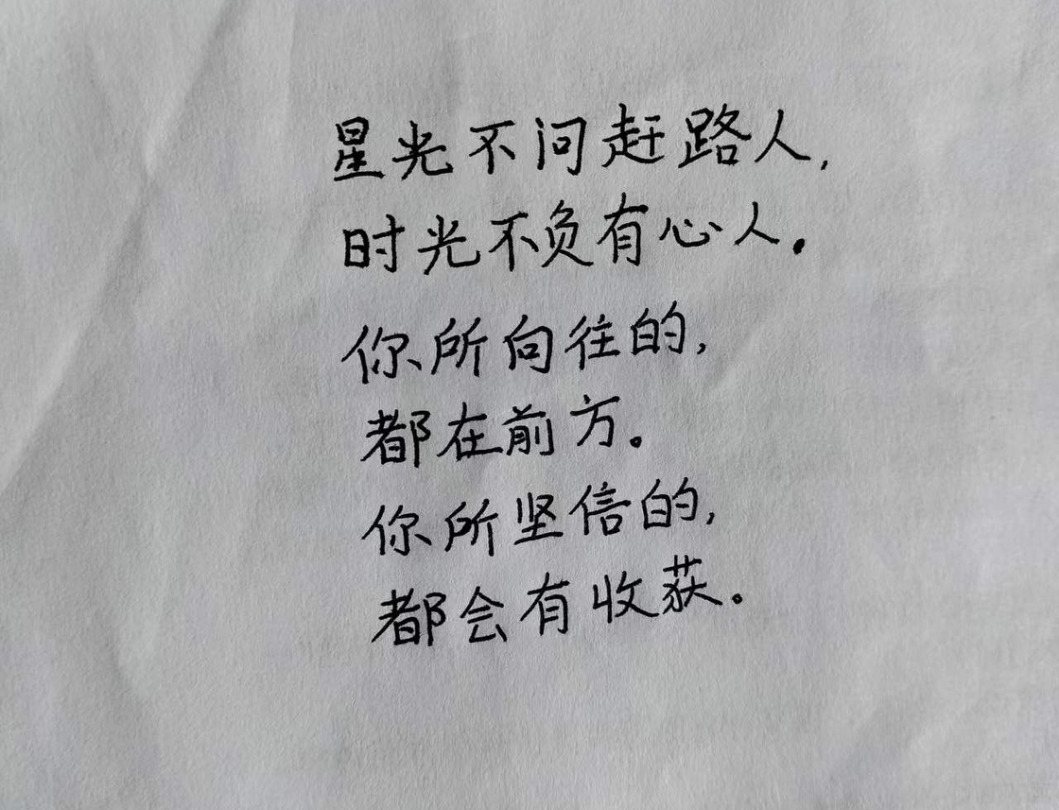 星光不问赶路人,
时光不负有心人。
你所向往的,
都在前方。
你所坚信的,
都会有收获。